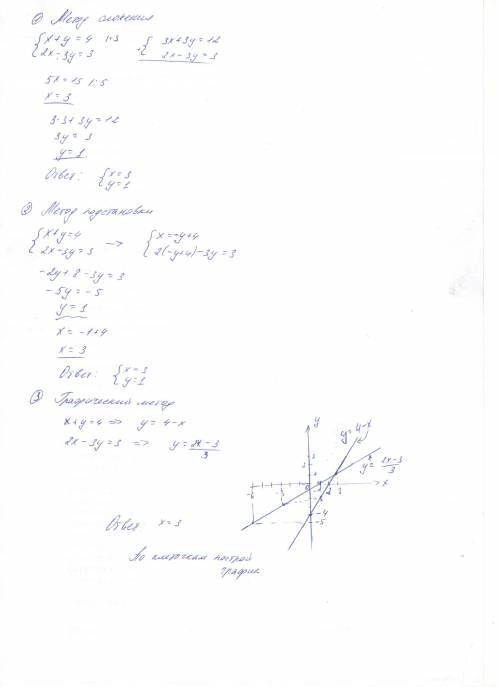 ① Метод сложения
{x+y=4 |·3 +{3x+3y=12
{2x-3y=3 2x-3y=3
5x=15 |:5
x=3
3·3+3y=12
3y=3
y=1
Ответ: {x=3
{y=1
② Метод подстановки
{x+y=4 → {x=-y+4
{2x-3y=3 {2(-y+4)-3y=3
-2y+8-3y=3
-5y=-5
y=1
x=-1+4
x=3
Ответ: {x=3
{y=1
③ Графический метод
x+y=4 => y=4-x
2x-3y=3 => y=2x-3/3
y
y=4-x
y=2x-3/3
x
0
2
3
-4
-5
Ответ x=3
По клеточкам построй
график